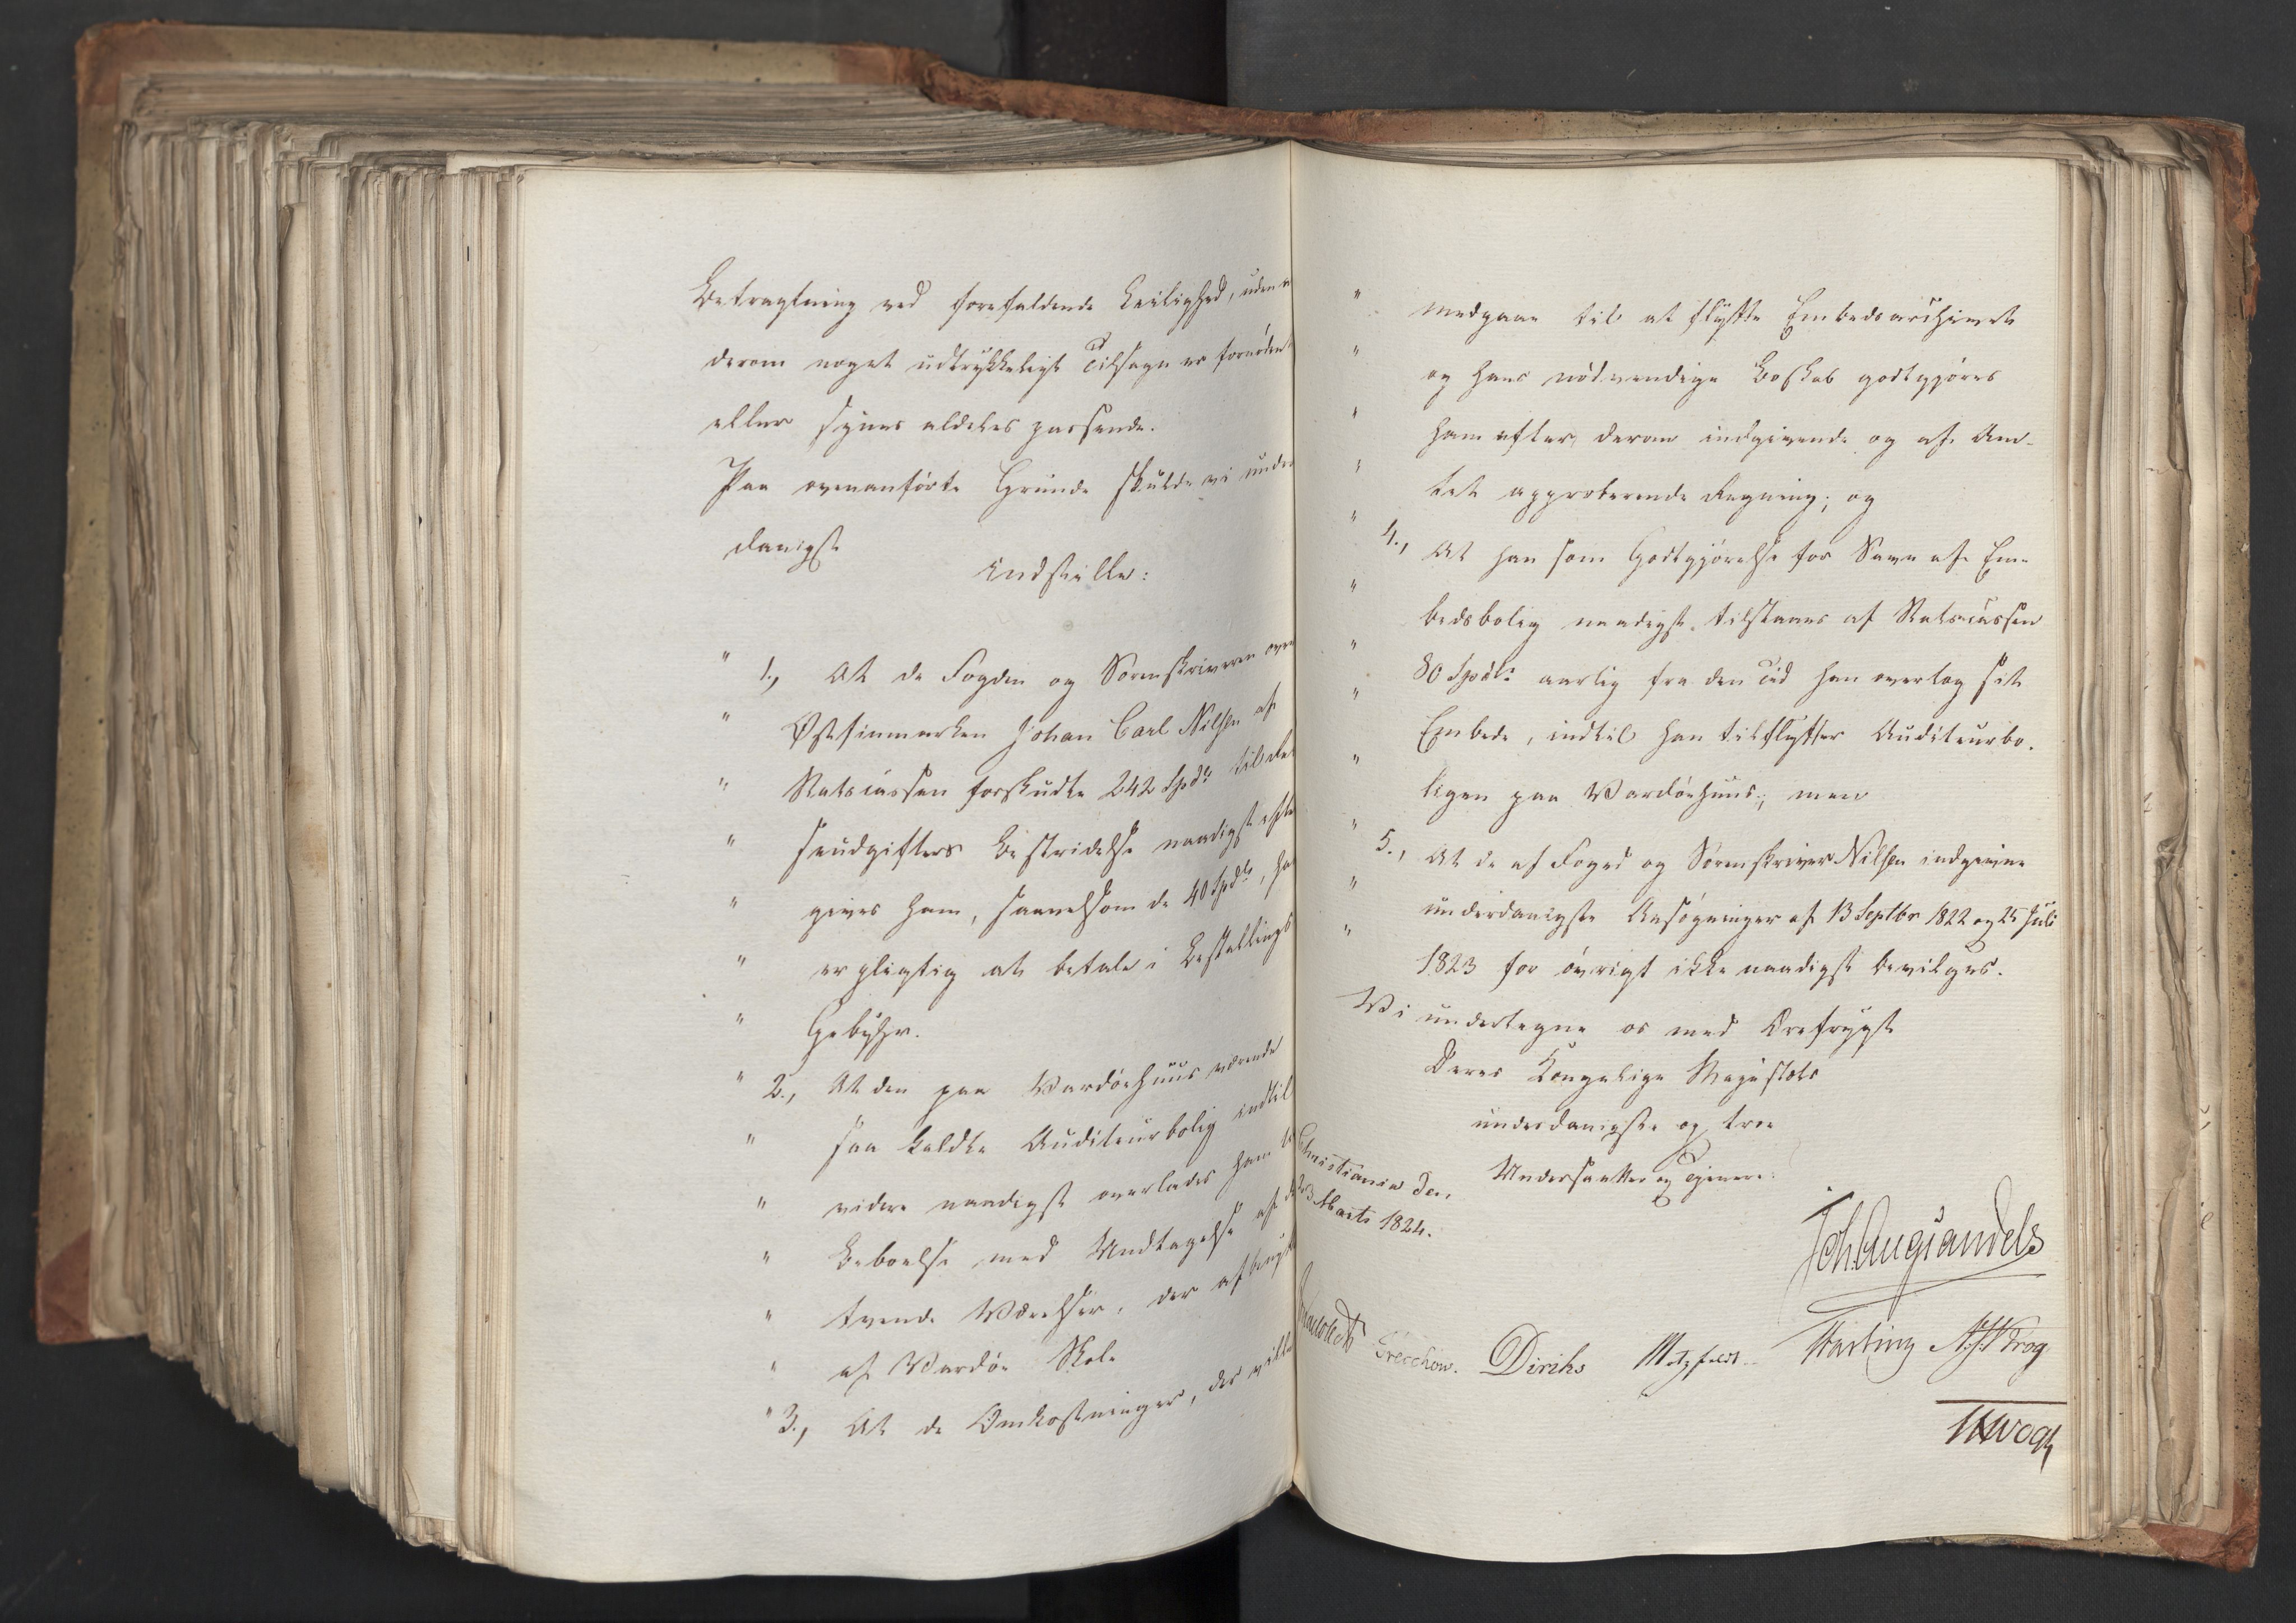 Betragtning ved forefaldende Leilighed, uden
derom noget udtrykkeligt Tilsagn er fornöden
eller synes aldeles passende.
Paa ovenanförte Grunde skulde vi under
danigst
indstille:
" 1., At de Fogden og Sorenskriveren over
" Östfinmarken Johan Carl Nilsen af
" Statscassen forskudte 242 Spd. til
" seudgifters Bestridelse naadigst efter
" gives ham, saavelsom de 40 Spd., han
" er pligtig at betale i Bestallings
" Gebyhr.
" 2., At den paa Wardöehuus værende
" saa kaldte Auditeurbolig indtil
" videre naadigst overlades ham til
" Beboelse med Undtagelse af de
" tvende Værelser, der afbenyttes
" af Wardöe Skole
" 3., At de Omkostninger, der ville
" medgaae til at flytte Embedsarchivet
" og hans nödvendige Boskab godtgjöres
" ham efter derom indgivende og af Am-
" tet approberende Regning; og
" 4., At han som Godtgjörelse for Savn af Em-
" bedsbolig naadigst tilstaaes af Statscassen
" 80 Spd. aarlig fra den Tid han overtog sit
" Embede, indtil han tilflytter Auditeurbo-
" ligen paa Wardöehuus; men
" 5., At de af Foged og Sorenskriver Nilsen indgivne
" underdanigste Ansögninger af 13 Septbr 1822 og 25 Juli
" 1823 for övrigt ikke naadigst bevilges.
Wi undertegne os med Ærefrygt
Deres Kongelige Majestæts
underdanigste og troe
Undersaatter og Tjenere.
Christiania den
23 Marts 1824.
Joh Aug Sandels
Treschow. Diriks Motzfeldt Fasting A.H. Krog
Vogt